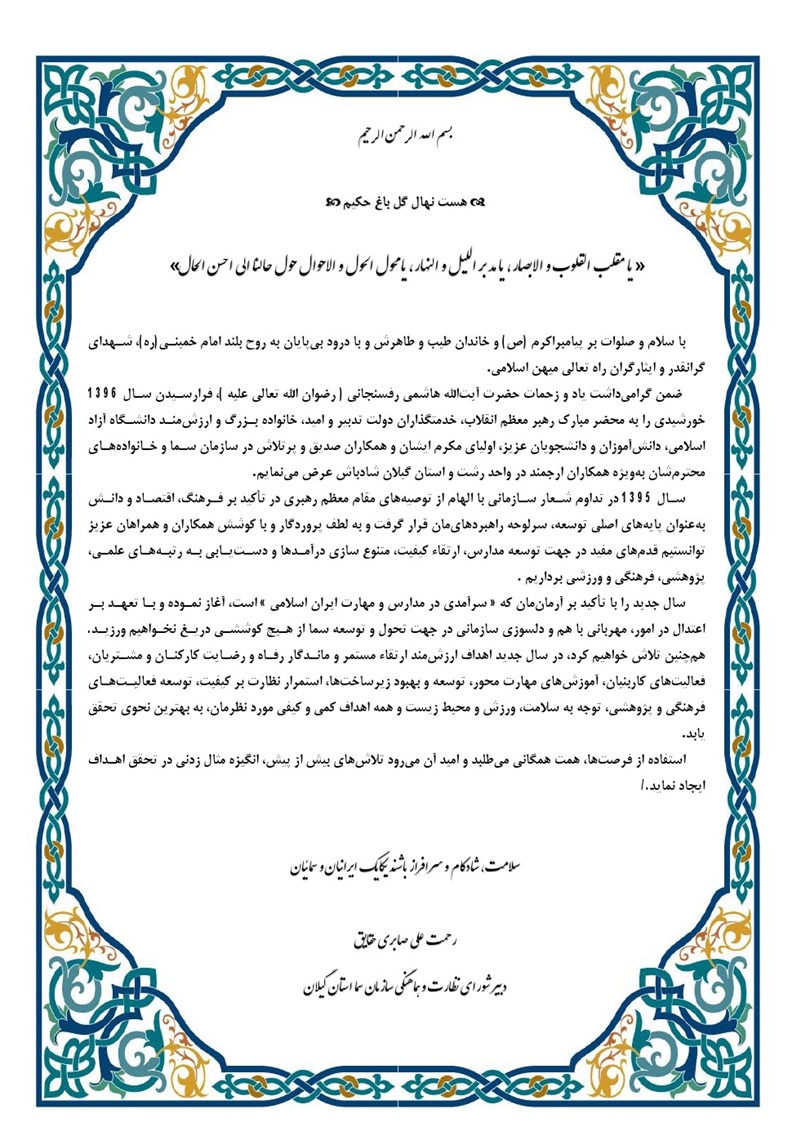 بسم الله الرحمن الرحیم
هست نهال گل باغ حکیم
« یا مقلب القلوب و الابصار ، یا مدبر اللیل و النهار ، یا محول الحول و الاحوال حول حالنا الی احسن الحال»
با سلام و صلوات بر پیامبراکرم (ص) و خاندان طیب و طاهرش و با درود بی‌پایان به روح بلند امام خمینی(ره)، شهدای
گرانقدر و ایثارگران راه تعالی میهن اسلامی.
ضمن گرامی‌داشت یاد و زحمات حضرت آیت‌الله هاشمی رفسنجانی ( رضوان الله تعالی علیه )، فرارسیدن سال 1396
خورشیدی را به محضر مبارک رهبر معظم انقلاب، خدمتگذاران دولت تدبیر و امید، خانواده بزرگ و ارزش‌مند دانشگاه آزاد
اسلامی، دانش‌آموزان و دانشجویان عزیز، اولیای مکرم ایشان و همکاران صدیق و پرتلاش در سازمان سما و خانواده‌های
محترم‌شان به‌ویژه همکاران ارجمند در واحد رشت و استان گیلان شادباش عرض می‌نمایم.
سال 1395 در تداوم شعار سازمانی با الهام از توصیه‌های مقام معظم رهبری در تأکید بر فرهنگ، اقتصاد و دانش
به‌عنوان پایه‌های اصلی توسعه، سرلوحه راهبردهای‌مان قرار گرفت و به لطف پروردگار و با کوشش همکاران و همراهان عزیز
توانستیم قدم‌های مفید در جهت توسعه مدارس، ارتقاء کیفیت، متنوع سازی درآمدها و دست‌یابی به رتبه‌های علمی،
پژوهشی، فرهنگی و ورزشی برداریم .
سال جدید را با تأکید بر آرمان‌مان که « سرآمدی در مدارس و مهارت ایران اسلامی » است، آغاز نموده و با تعهد بر
اعتدال در امور، مهربانی با هم و دلسوزی سازمانی در جهت تحول و توسعه سما از هیچ کوششی دریغ نخواهیم ورزید.
هم‌چنین تلاش خواهیم کرد، در سال جدید اهداف ارزش‌مند ارتقاء مستمر و ماندگار رفاه و رضایت کارکنان و مشتریان،
فعالیت‌های کاربنیان، آموزش‌های مهارت محور، توسعه و بهبود زیرساخت‌ها، استمرار نظارت بر کیفیت، توسعه فعالیت‌های
فرهنگی و پژوهشی، توجه به سلامت، ورزش و محیط زیست و همه اهداف کمی و کیفی مورد نظرمان، به بهترین نحوی تحقق
یابد.
استفاده از فرصت‌ها، همت همگانی می‌طلبد و امید آن می‌رود تلاش‌های بیش از پیش، انگیزه مثال زدنی در تحقق اهداف
ایجاد نماید./
سلامت، شادکام و سرافراز باشند یکایک ایرانیان و سمائیان
رحمت علی صابری حقایق
دبیر شورای نظارت و هماهنگی سازمان سما استان گیلان